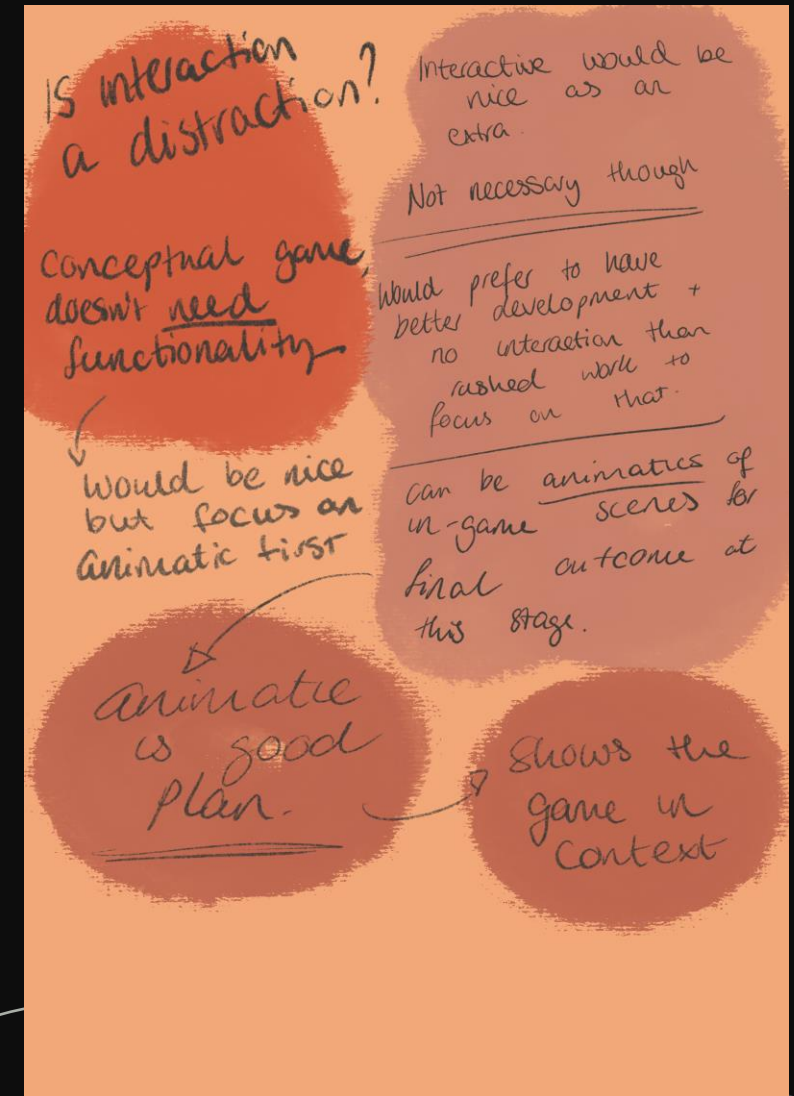 Is interaction
a distraction?
Conceptual game,
doesn't need
functionality
would be nice
but focus on
animatic first
Interactive would be
nice as an
extra.
Not necessary though
Would prefer to have
better development +
no interaction than
rushed work to
focus on that.
can be animatics of
in-game scenes for
final outcome at
this stage.
animatic
is good
plan.
shows the
game in
context